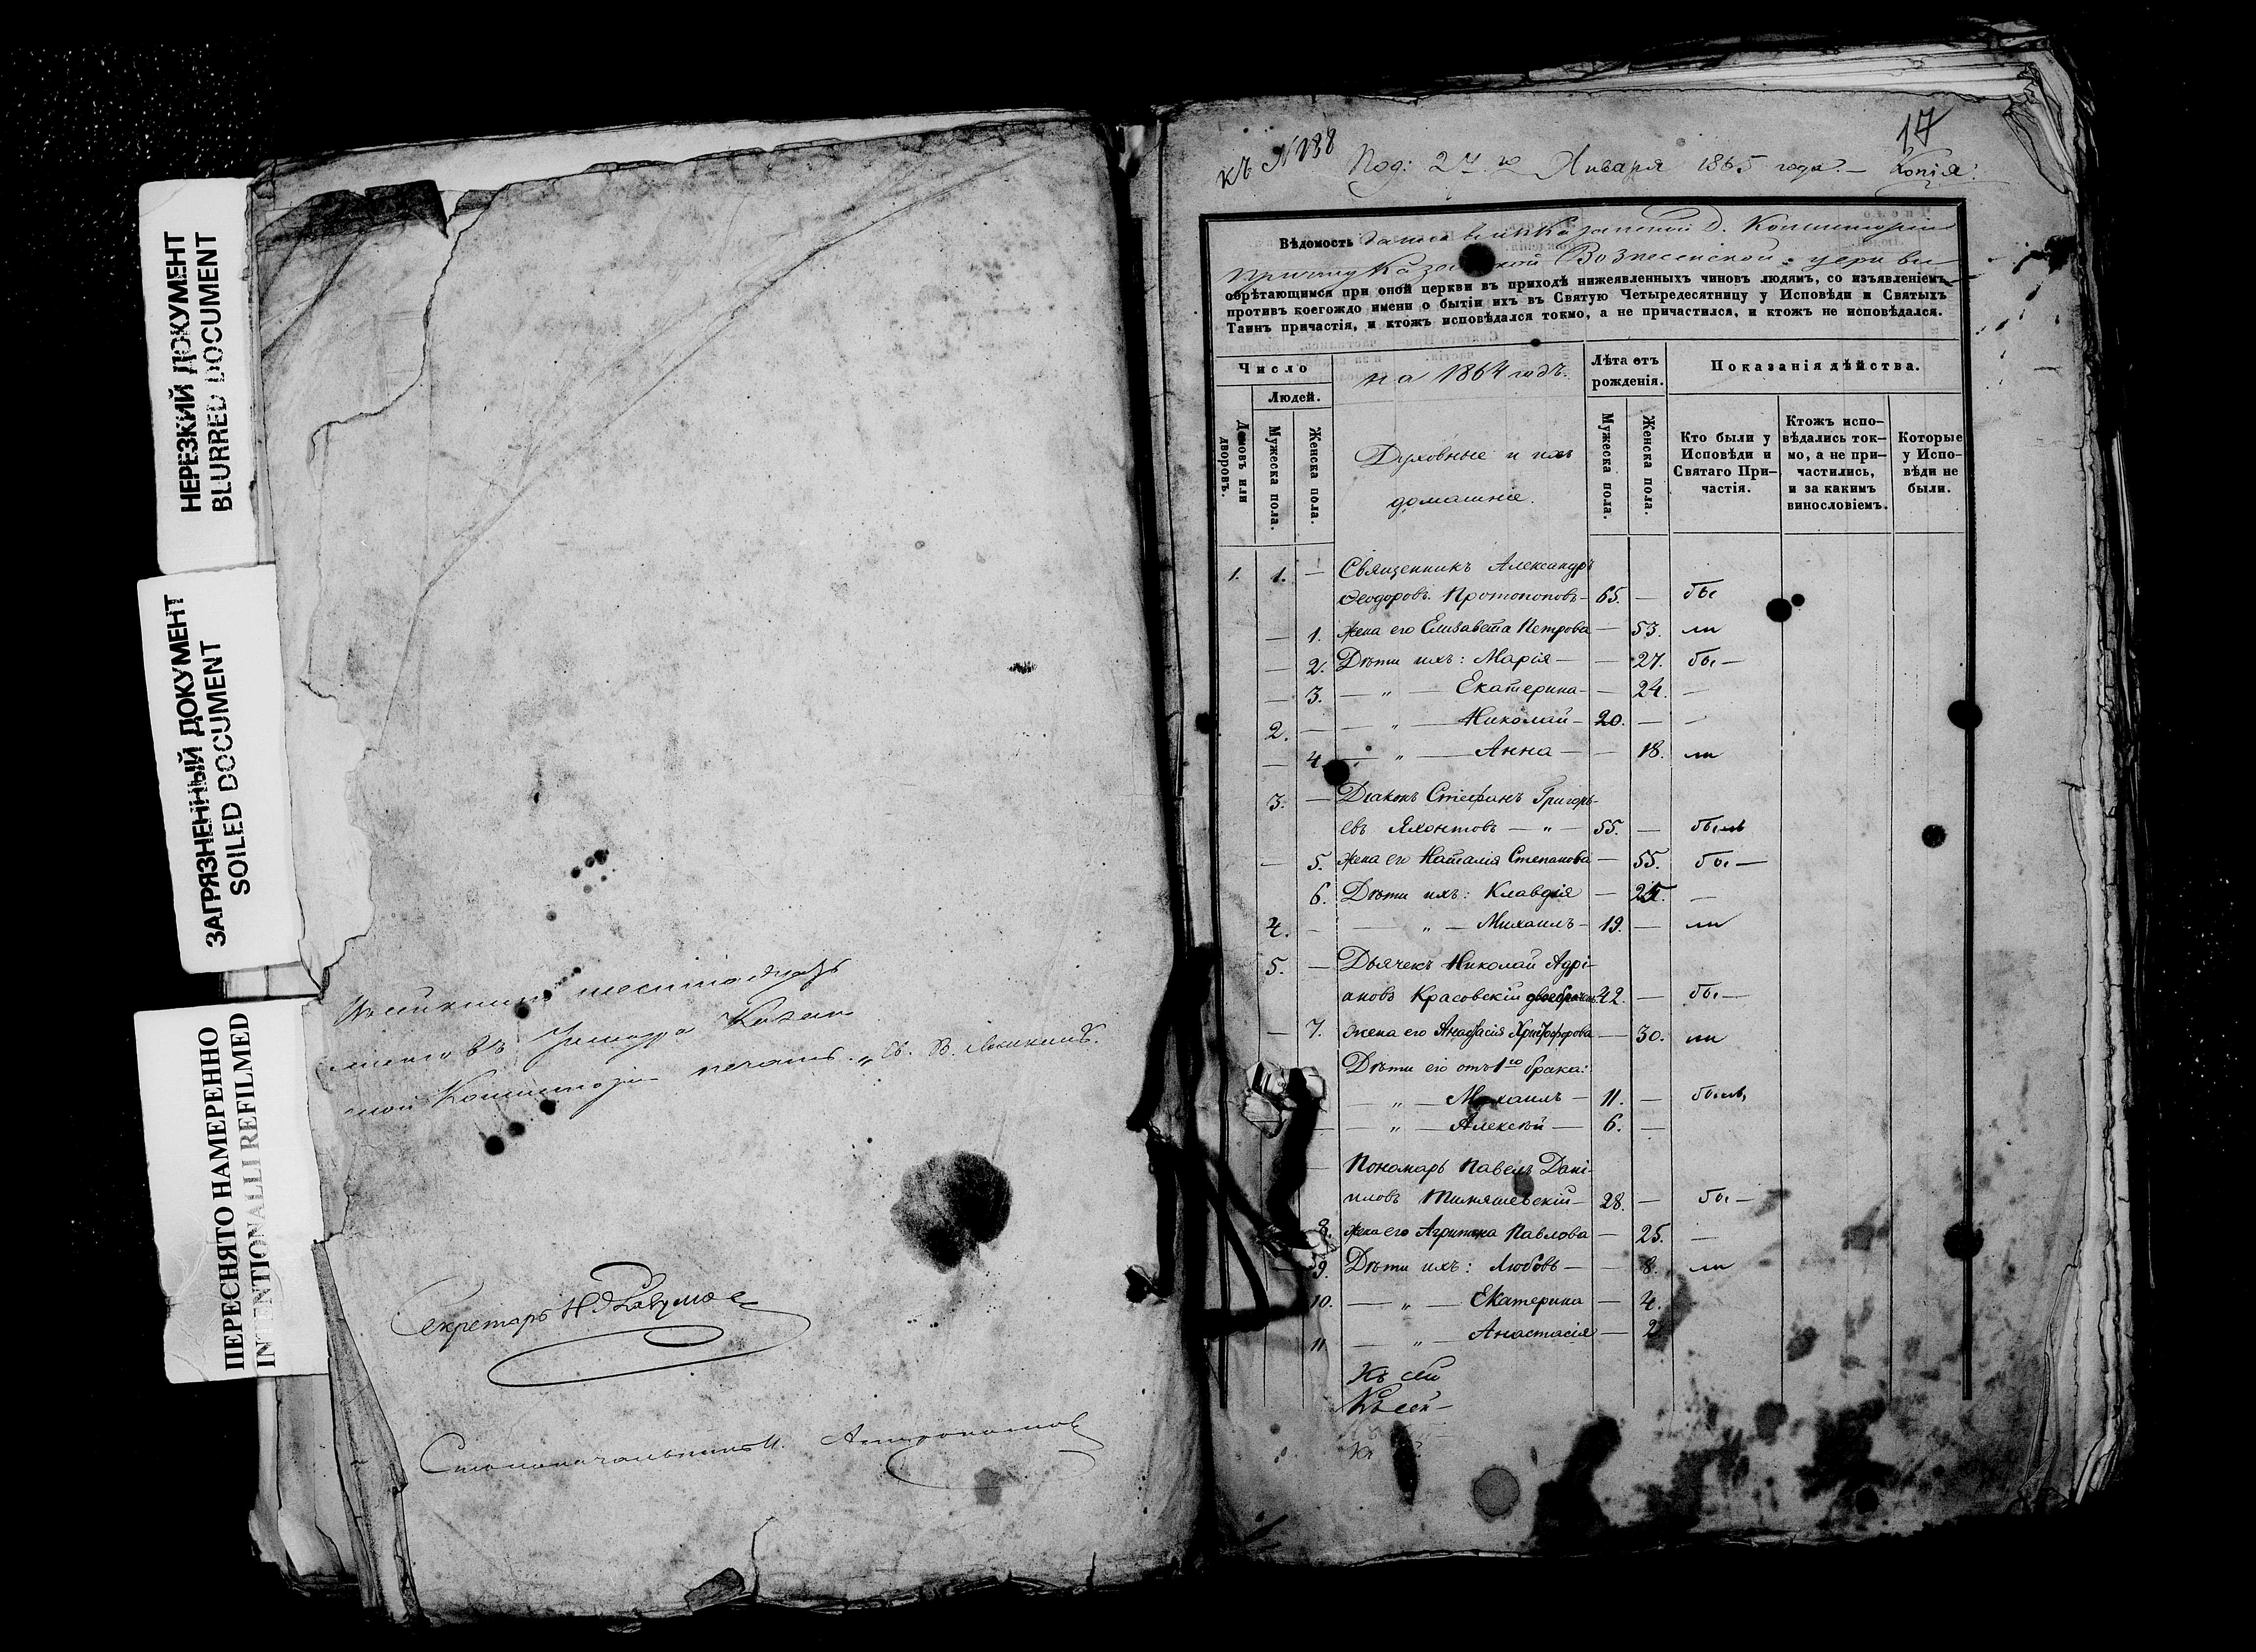 НЕРЕЗКИЙ ДОКУМЕНТ
BLURRED DOCUMENT
ЗАГРЯЗНЕННЫЙ ДОКУМЕНТ
SOILED DOCUMENT
ПЕРЕСНЯТО НАМЕРЕННО
INTENTIONALLI REFILMED
Казан
ной Консистор печать.
Секретарь Н
Столоначальникъ
17
къ № 188
Под: 27го Января 1865 года. — Копія.
Вѣдомость Д. Консисторіи
причту Вознесенской церкви
обрѣтающимся при оной церкви въ приходѣ нижеявленныхъ чиновъ людямъ, со изъявленіемъ
противъ коегождо имени о бытіи ихъ въ Святую Четыредесятницу у Исповѣди и Святыхъ
Таинъ причастія, и ктожъ исповѣдался токмо, а не причастился, и ктожъ не исповѣдался.
Число
Людей.
Домовъ или дворовъ.
Мужеска пола.
Женска пола.
на 1864 годъ.
Духовные и ихъ
домашніе.
Лѣта отъ рожденія.
Мужеска пола.
Женска пола.
Показанія дѣйства.
Кто были у Исповѣди и Святаго При-частія.
Ктожъ испо-вѣдались ток-мо, а не при-частились, и за какимъ винословіемъ.
Которые у Испо-вѣди не были.
1. 1. — Священникъ Александръ
Ѳеодоровъ Протопоповъ — 65. — бы
— 1. Жена его Елисавета Петрова — 53. ли
— 2. Дѣти ихъ: Марія — — 27. бы —
— 3. — „ — Екатерина — — 24. —
2. — — „ — Николай — 20. — —
— 4. — „ — Анна — — 18. ли
3. — Діаконъ Стефанъ Григорь-
евъ Яхонтовъ — „ — 55. — былъ
— 5. Жена его Наталія Степанова — 55. бы —
6. Дѣти ихъ: Клавдія — 25. —
4. — — „ — Михаилъ — 19. — ли
5. — Дьячекъ Николай Адрі-
ановъ Красовскій двоебрачн. 42. — бы —
— 7. Жена его Анастасія Христофорова — 30. ли
Дѣти его отъ 1го брака:
— „ — Михаилъ — 11. — былъ,
— „ — Алексѣй — 6. —
— Пономарь Павелъ Дані-
иловъ — 28. — бы —
8. Жена его Агрипина Павлова — 25. —
9. Дѣти ихъ: Любовь — — 8. ли
10. — „ — Екатерина — 4.
11 — „ — Анастасія — 2
Къ сей
Къ сей —